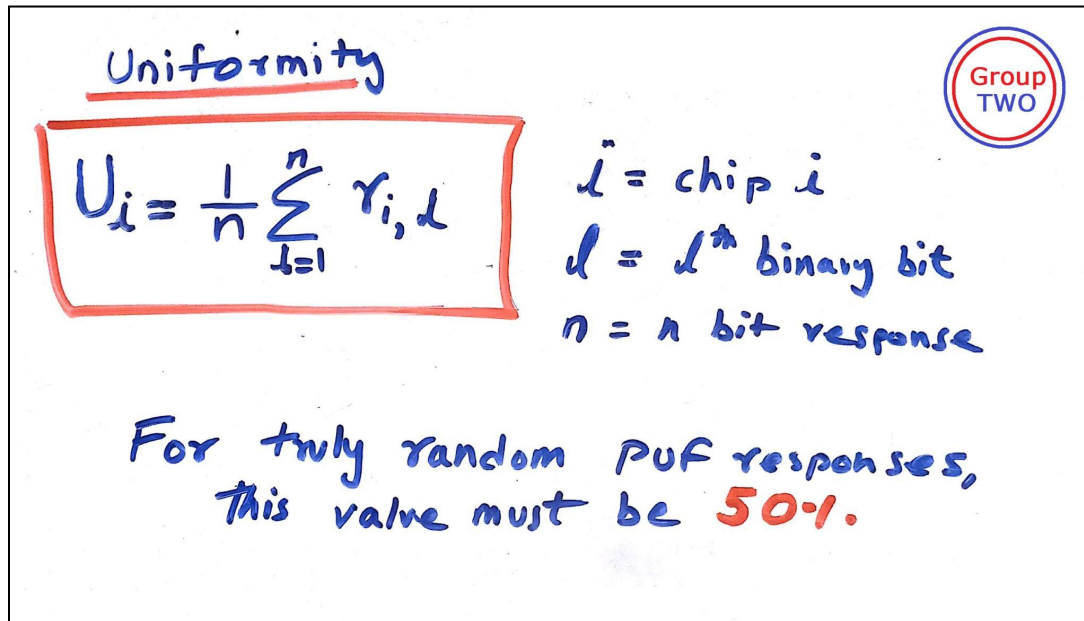 Uniformity
Group
TWO
U_i = 1/n ∑_{l=1}^{n} r_{i, l}
i = chip i
l = l^th binary bit
n = n bit response
For truly random PUF responses,
this value must be 50%.